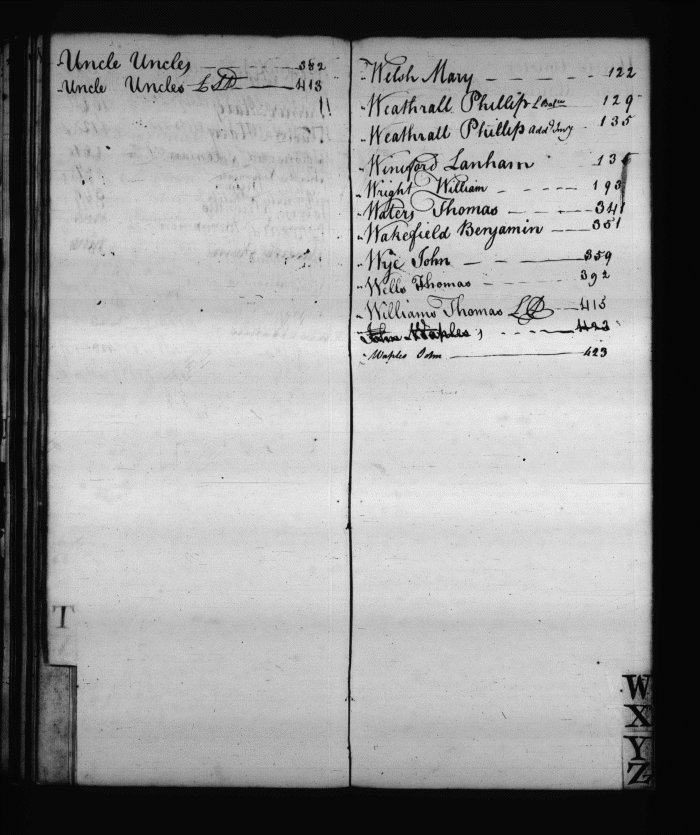 Uncle Uncles 382
Uncle Uncles L SD 413
T
Welsh Mary 122
Weathrall Phillip 129
Weathrall Phillip add. Invy 135
Winiford Lanham 135
Wright William 193
Waters Thomas 341
Wakefield Benjamin 351
Wye John 359
Wells Thomas 392
Williams Thomas 413
John Waples 423
Waples John 423
W
X
Y
Z